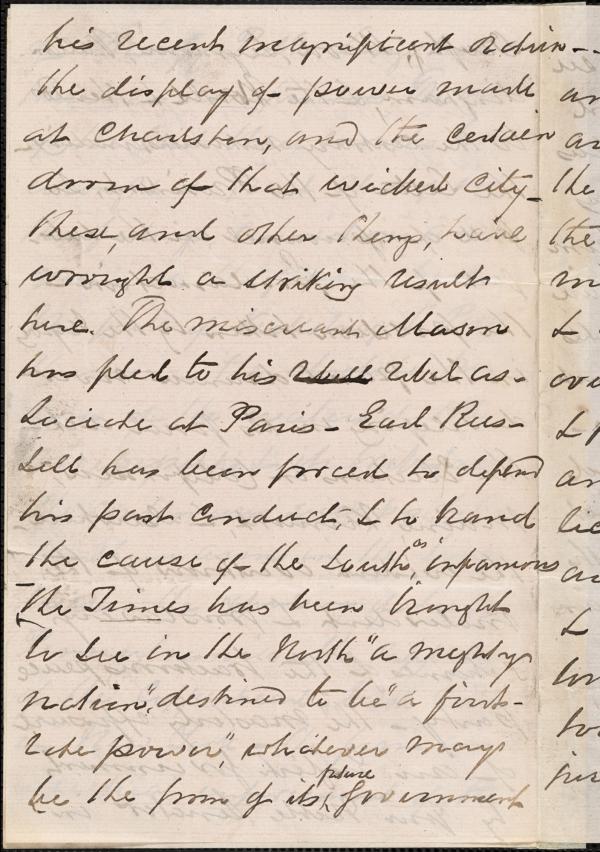 his recent magnificent oration -
the display of power made
at Charleston, and the certain
doom of that wicked city -
these, and other things, have
wrought a striking result
here. The miscreant Mason
has fled to his rebel as-
sociate at Paris - Earl Rus-
sell has been forced to defend
his past conduct, & to brand
the cause of the South, as infamous
The Times has been brought
to see in the North "a mighty
nation", destined to be "a first-
rate power", whatever may
be the form of its future government
an
ar
the
the
m
&
ove
&
an
lic
&